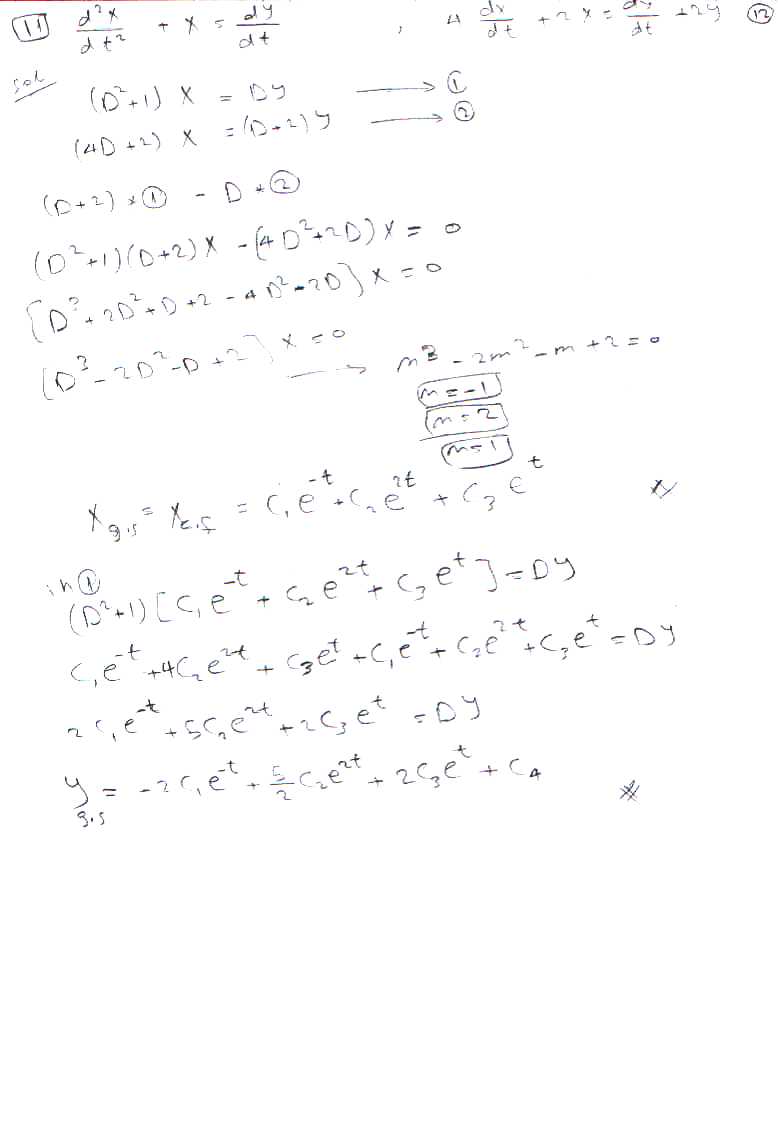 11 d²x/dt² + x = dy/dt , 4 dx/dt + 2x = dy/dt + 2y 12
sol
(D²+1) x = Dy → ①
(4D+2) x = (D+2) y → ②
(D+2) * ① - D * ②
(D²+1)(D+2)x - (4D²+2D)x = 0
[D³+2D²+D+2-4D²-2D] x = 0
[D³-2D²-D+2] x = 0 → m³-2m²-m+2=0
m=-1
m=2
m=1
x g.s = x c.f = c₁e^-t + c₂e^2t + c₃e^t
in ①
(D²+1)[c₁e^-t + c₂e^2t + c₃e^t] = Dy
c₁e^-t + 4c₂e^2t + c₃e^t + c₁e^-t + c₂e^2t + c₃e^t = Dy
2c₁e^-t + 5c₂e^2t + 2c₃e^t = Dy
y g.s = -2c₁e^-t + 5/2 c₂e^2t + 2c₃e^t + c₄